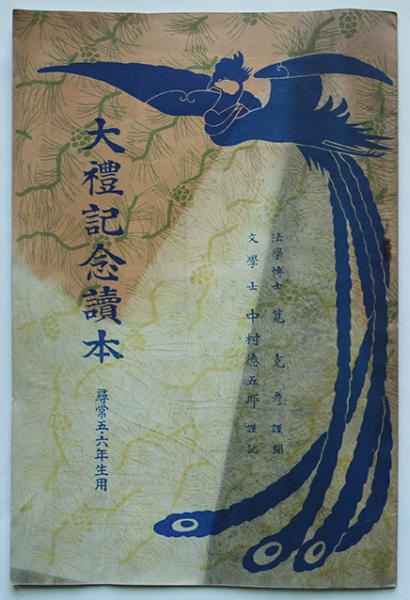 大禮記念讀本
尋常五・六年生用
法學博士 筧克彥 謹閱
文學士 中村德五郎 謹記